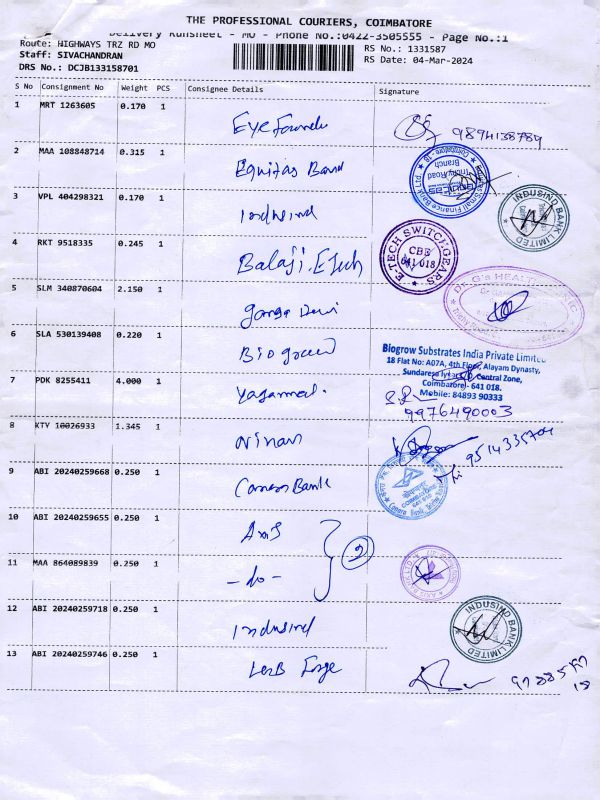 THE PROFESSIONAL COURIERS, COIMBATORE
Delivery Runsheet - MO - Phone No.:0422-3505555 - Page No.:1
Route: HIGHWAYS TRZ RD MO
Staff: SIVACHANDRAN
DRS No.: DCJB133158701
RS No.: 1331587
RS Date: 04-Mar-2024
S No Consignment No Weight PCS Consignee Details Signature
1 MRT 1263605 0.170 1
9894138789
2 MAA 108848714 0.315 1 Equitas Bank
3 VPL 404298321 0.170 1 Indusind
INDUSIND BANK LIMITED
4 RKT 9518335 0.245 1 Balaji. ETech
E-TECH SWITCHGEARS
CBE
641 018
5 SLM 340870604 2.150 1 ganga Devi
6 SLA 530139408 0.220 1 Biogreen
Biogrow Substrates India Private Limited
18 Flat No: A07A, 4th Floor, Alayam Dynasty,
Central Zone,
Coimbatore- 641 018.
Mobile: 84893 90333
7 PDK 8255411 4.000 1
9976490003
8 KTY 10026933 1.345 1
9514335704
9 ABI 20240259668 0.250 1 Canara Bank
10 ABI 20240259655 0.250 1 Axis
2
11 MAA 864089839 0.250 1 - do -
12 ABI 20240259718 0.250 1 Indusind
INDUSIND BANK LIMITED
13 ABI 20240259746 0.250 1